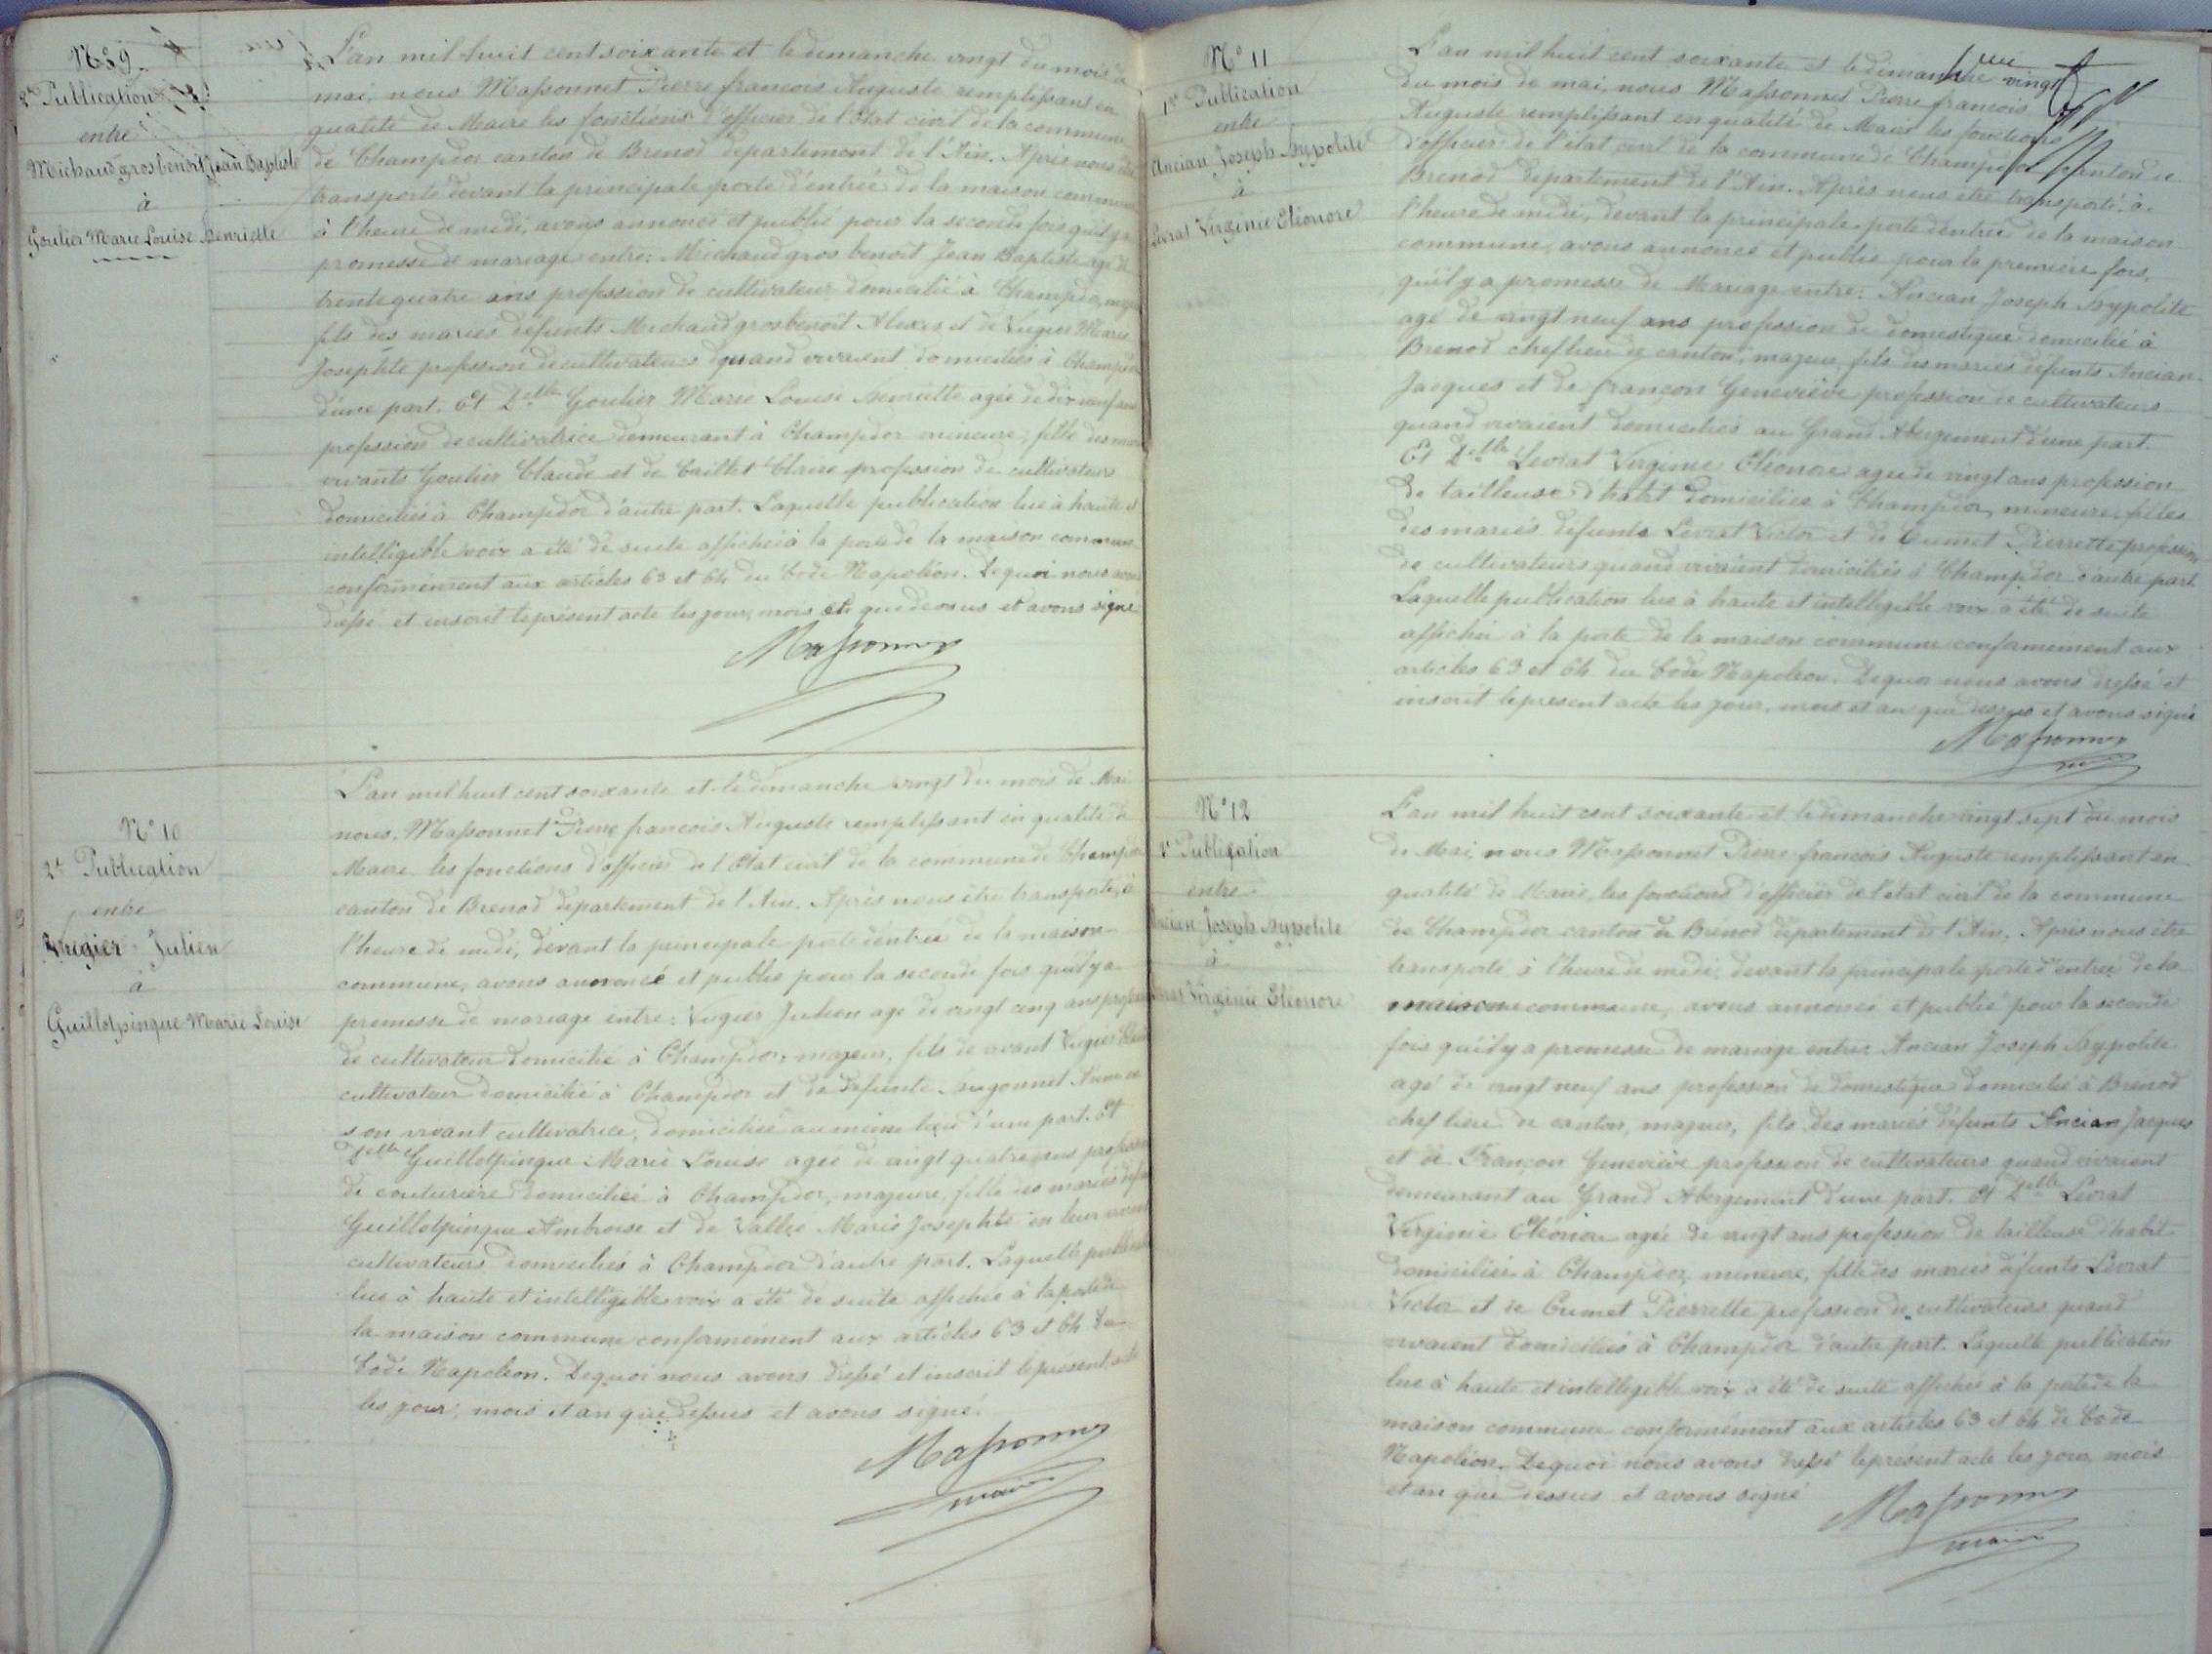 N° 9
2e Publication
entre
Michaud gros benoit Jean Baptiste
à
Goulier Marie Louise henriette
L'an mil huit cent soixante et le dimanche vingt du mois de
mai, nous Massonnet Pierre francois Auguste remplissant en
qualité de Maire les fonctions d'officier de l'état civil de la commune
de Champdor canton de Brenod département de l'Ain. Après nous être
transporté devant la principale porte d'entrée de la maison commune
à l'heure de midi, avons annoncé et publié pour la seconde fois qu'il y a
promesse de mariage entre: Michaud gros benoit Jean Baptiste agé de
trente quatre ans profession de cultivateur domicilié à Champdor, majeur
fils des mariés defunts Michaud gros benoit Alexis et de Vugier Marie
Josephte profession de cultivateurs quand vivaient domiciliés à Champdor
d'une part. Et Delle Goulier Marie Louise henriette agée de dix neuf ans
profession de cultivatrice demeurant à Champdor mineure, fille des mariés
vivants Goulier Claude et de Caillet Claire profession de cultivateurs
domiciliés à Champdor d'autre part. Laquelle publication lue à haute et
intelligible voix a été de suite affichée à la porte de la maison commune
conformement aux articles 63 et 64 du Code Napoléon. De quoi nous avons
dressé et inscrit le présent acte les jour, mois et que dessus et avons signé
Massonnet
N° 10
2e Publication
entre
Vugier Julien
à
Guillotpinque Marie Louise
L'an mil huit cent soixante et le dimanche vingt du mois de Mai
nous, Massonnet Pierre francois Auguste remplissant en qualité de
Maire les fonctions d'officier de l'Etat civil de la commune de Champdor
canton de Brenod département de l'Ain. Après nous être transporté, à
l'heure de midi, devant la principale porte d'entrée de la maison
commune, avons annoncé et publié pour la seconde fois qu'il y a
promesse de mariage entre: Vugier Julien agé de vingt cinq ans profession
de cultivateur domicilié à Champdor, majeur, fils de vivant Vugier
cultivateur domicilié à Champdor et de defunte hugonnet Anne en
son vivant cultivatrice, domiciliée au même lieu d'une part. Et
Delle Guillotpinque Marie Louise agée de vingt quatre ans profession
de couturière domiciliée à Champdor, majeure, fille des mariés defunts
Guillotpinque Ambroise et de Vallet Marie Josephte en leur vivant
cultivateurs domiciliés à Champdor d'autre part. Laquelle publication
lue à haute et intelligible voix a été de suite affichée à la porte de
la maison commune conformément aux articles 63 et 64 du
Code Napoléon. De quoi nous avons dressé et inscrit le présent acte
les jour, mois et an que dessus et avons signé.
Massonnet
maire
N° 11
1re Publication
entre
Ancian Joseph hypolite
à
Levrat Virginie Eléonore
L'an mil huit cent soixante et le dimanche vingt
du mois de mai, nous Massonnet Pierre francois
Auguste remplissant en qualité de Maire les fonctions
d'officier de l'état civil de la commune de Champdor canton de
Brenod département de l'Ain. Après nous être transporté, à
l'heure de midi, devant la principale porte d'entrée de la maison
commune, avons annoncé et publié pour la première fois,
qu'il y a promesse de Mariage entre: Ancian Joseph hypolite
agé de vingt neuf ans profession de domestique domicilié à
Brenod chef lieu de canton, majeur, fils des mariés défunts Ancian
Jacques et de françon Geneviève profession de cultivateurs
quand vivaient domiciliés au Grand Abergement d'une part.
Et Delle Levrat Virginie Eléonore agée de vingt ans profession
de tailleuse d'habit domiciliée à Champdor, mineure, fille
des mariés defunts Levrat Victor et de Cumet Pierrette profession
de cultivateurs quand vivaient domiciliés à Champdor d'autre part
Laquelle publication lue à haute et intelligible voix a été de suite
affichée à la porte de la maison commune conformement aux
articles 63 et 64 du Code Napoleon. De quoi nous avons dressé et
inscrit le présent acte les jour, mois et an que dessus et avons signé
Massonnet
N° 12
2e Publication
entre
Ancian Joseph hypolite
à
Levrat Virginie Eléonore
L'an mil huit cent soixante et le dimanche vingt sept du mois
de Mai, nous Massonnet Pierre francois Auguste remplissant en
qualité de Maire, les fonctions d'officier de l'état civil de la commune
de Champdor canton de Brenod département de l'Ain, Après nous être
transporté à l'heure de midi, devant la principale porte d'entrée de la
maison commune, avons annoncé et publié pour la seconde
fois qu'il y a promesse de mariage entre Ancian Joseph hypolite
agé de vingt neuf ans profession de domestique domicilié à Brenod
chef lieu de canton, majeur, fils des mariés défunts Ancian Jacques
et de Françon Geneviève profession de cultivateurs quand vivaient
demeurant au Grand Abergement d'une part. Et Delle Levrat
Virginie Eléonore agée de vingt ans profession de tailleuse d'habit
domiciliée à Champdor, mineure, fille des mariés défunts Levrat
Victor et de Cumet Pierrette profession de cultivateurs quand
vivaient domiciliés à Champdor d'autre part. Laquelle publication
lue à haute et intelligible voix a été de suite affichée à la porte de la
maison commune conformément aux articles 63 et 64 de Code
Napoléon. De quoi nous avons dressé le présent acte les jour, mois
et an que dessus et avons signé
Massonnet
maire